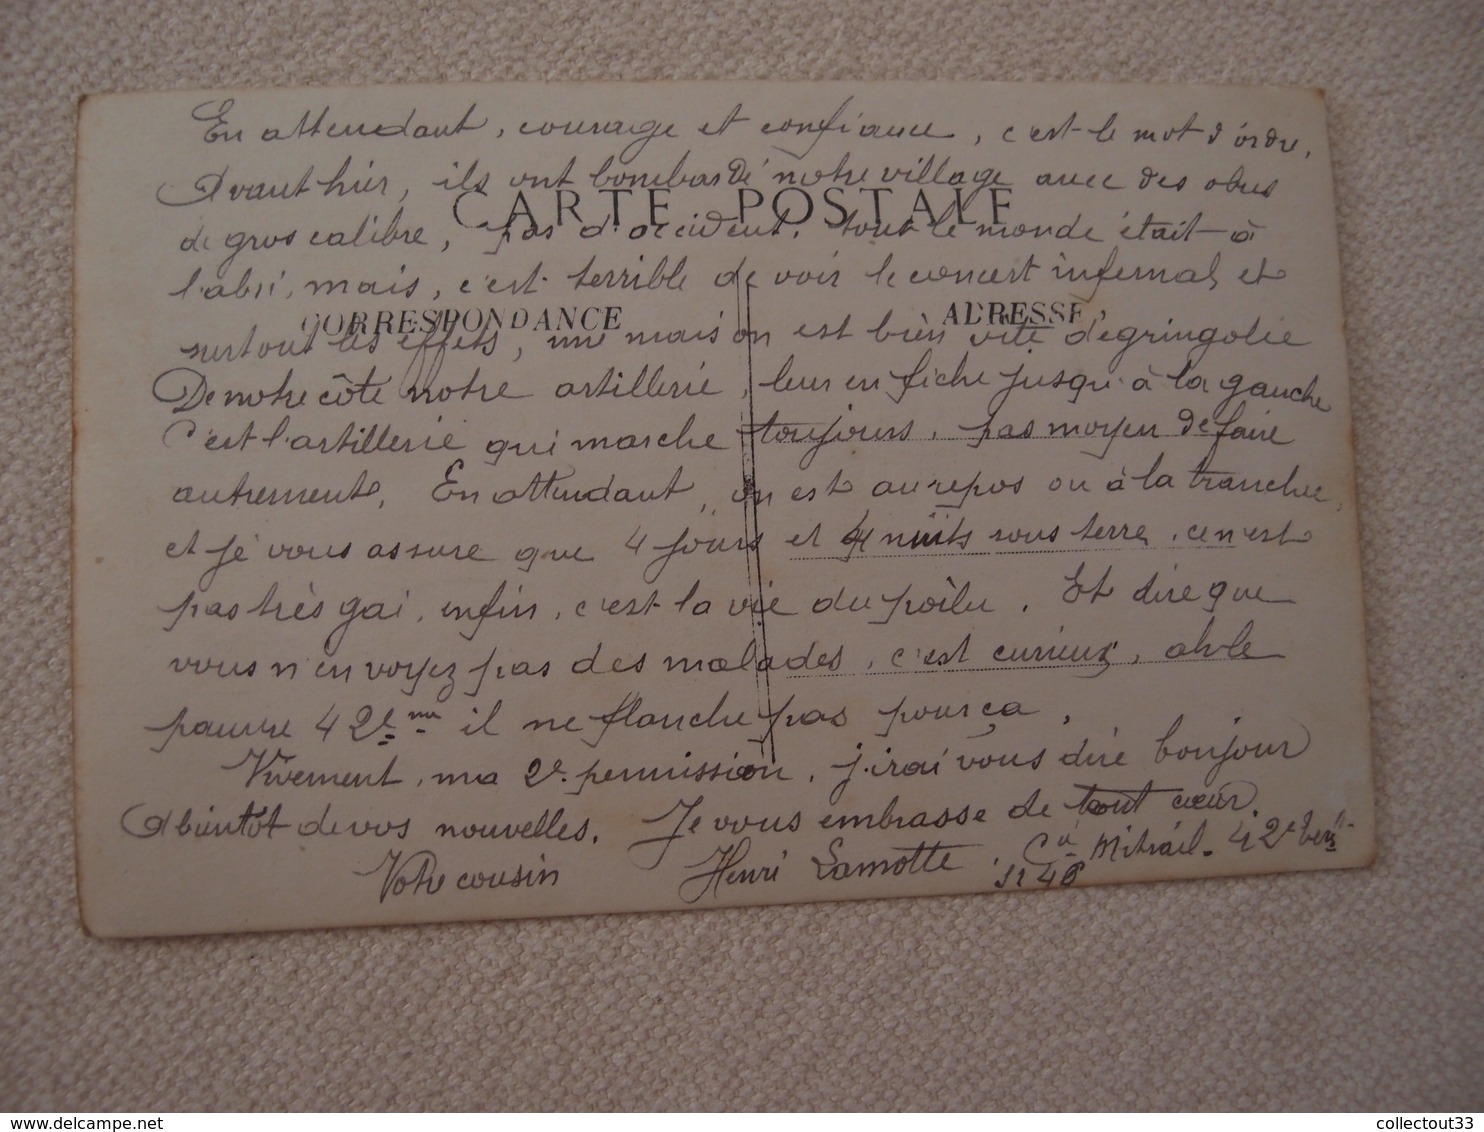 En attendant, courage et confiance, c'est le mot d'ordre.
Avant hier, ils ont bombardé notre village avec des obus
CARTE POSTALE
de gros calibre, pas d'accident. tout le monde était à
l'abri, mais, c'est terrible de voir le concert infernal, et
CORRESPONDANCE ADRESSE
surtout les effets, une maison est bien vite dégringolée
De notre côté notre artillerie, leur en fiche jusqu'à la gauche
C'est l'artillerie qui marche toujours, pas moyen de faire
autrement. En attendant, on est au repos ou à la tranchée,
et je vous assure que 4 jours et 4 nuits sous terre, ce n'est
pas très gai, enfin, c'est la vie du poilu. Et dire que
vous n'envoyez pas des malades, c'est curieux, ah le
pauvre 42e il ne flanche pas pour ça,
Vivement, ma 2e permission, j'irai vous dire bonjour
A bientôt de vos nouvelles. Je vous embrasse de tout cœur,
Votre cousin Henri Lamotte. Cie Mitrail. 42e
St 46
collectout33